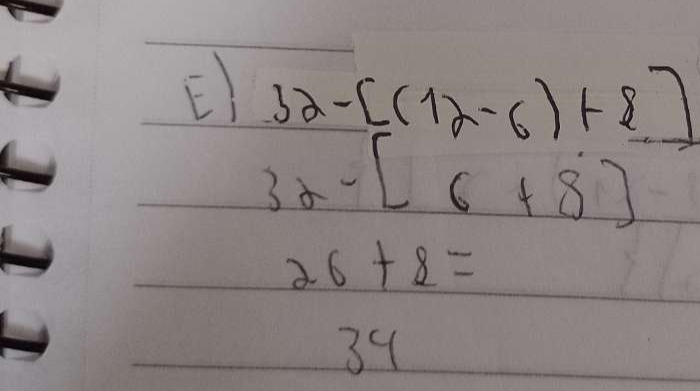 E) 32-[(12-6)+8]
32-[ 6 + 8 ]
26 + 8 =
34